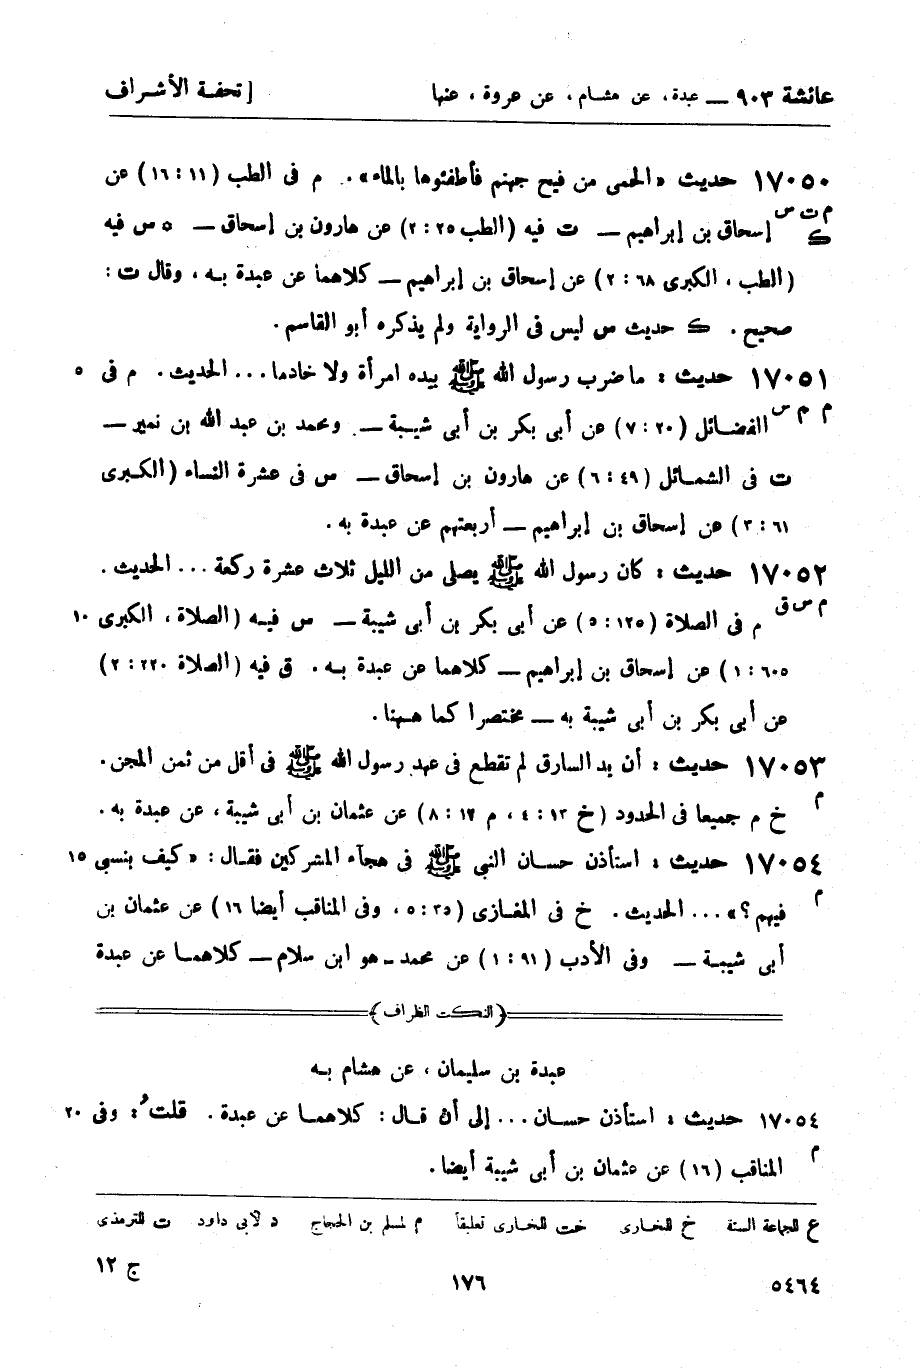 عائشة ٩٠٣ — عبدة، عن هشام، عن عروة، عنها [ تحفة الأشراف
١٧٠٥٠ حديث «الحمى من فيح جهنم فأطفئوها بالماء». م فى الطب (١١ : ١٦) عن
م ت س
ك
إسحاق بن إبراهيم — ت فيه (الطب ٢٥ : ٢) عن هارون بن إسحاق — * س فيه
(الطب، الكبرى ٦٨ : ٢) عن إسحاق بن إبراهيم — كلاهما عن عبدة به، وقال ت :
صحيح. ك حديث س ليس فى الرواية ولم يذكره أبو القاسم.
١٧٠٥١ حديث : ما ضرب رسول الله ﷺ بيده امرأة ولا خادما... الحديث. م فى ٥
م تم س
الفضائل (٢٠ : ٧) عن أبى بكر بن أبى شيبة — ومحمد بن عبد الله بن نمير —
ت فى الشمائل (٤٩ : ٦) عن هارون بن إسحاق — س فى عشرة النساء (الكبرى
٦١ : ٣) عن إسحاق بن إبراهيم — أربعتهم عن عبدة به.
١٧٠٥٢ حديث : كان رسول الله ﷺ يصلى من الليل ثلاث عشرة ركعة... الحديث.
م س ق
م فى الصلاة (١٢٥ : ٥) عن أبى بكر بن أبى شيبة — س فيه (الصلاة، الكبرى ١٠
٦٠٥ : ١) عن إسحاق بن إبراهيم — كلاهما عن عبدة به. ق فيه (الصلاة ٢٢٠ : ٢)
عن أبى بكر بن أبى شيبة به — مختصرا كما ههنا.
١٧٠٥٣ حديث : أن يد السارق لم تقطع فى عهد رسول الله ﷺ فى أقل من ثمن المجن.
م
خ م جميعا فى الحدود (خ ١٣ : ٤، م ١٢ : ٨) عن عثمان بن أبى شيبة، عن عبدة به.
١٧٠٥٤ حديث : استأذن حسان النبى ﷺ فى هجآء المشركين فقال : «كيف بنسبى ١٥
م
فيهم؟»... الحديث. خ فى المغازى (٣٥ : ٥، وفى المناقب أيضا ١٦) عن عثمان بن
أبى شيبة — وفى الأدب (٩١ : ١) عن محمد - هو ابن سلام — كلاهما عن عبدة
(النكت الظراف)
عبدة بن سليمان، عن هشام به
١٧٠٥٤ حديث : استأذن حسان... إلى أن قال : كلاهما عن عبدة. قلتُ : وفى ٢٠
م
المناقب (١٦) عن عثمان بن أبى شيبة أيضا.
ع للجماعة الستة خ للبخارى خت للبخارى تعليقاً م لمسلم بن الحجاج د لأبى داود ت للترمذى
٥٤٦٤ ١٧٦ ج ١٢